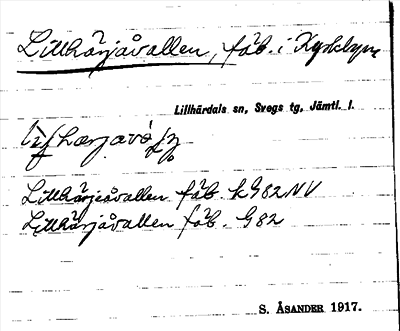 Lillhärjåvallen, fäb. i Kyrkbyn
Lillhärdals sn, Svegs tg, Jämtl. l.
Lillhärjeåvallen fäb kG82NV
Lillhärjåvallen fäb. G82
S. ÅSANDER 1917.